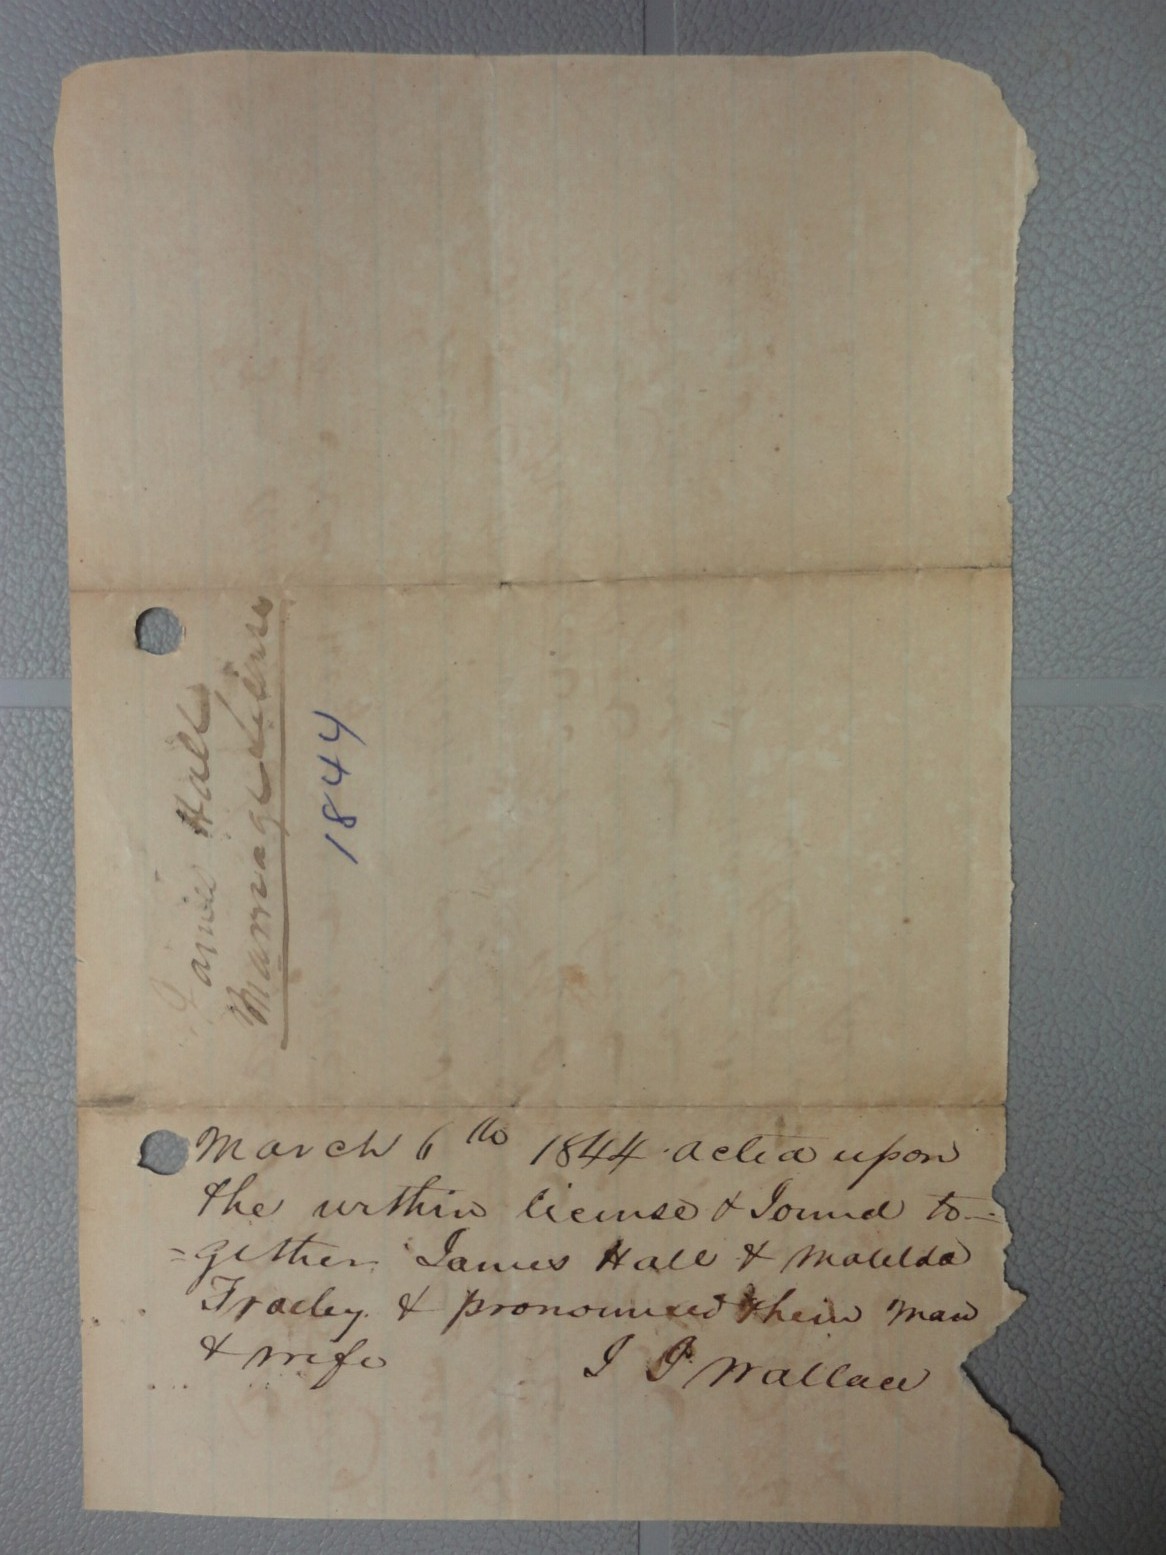 James Hall
Marriage Lisense
1844
March 6th 1844 acted upon
the within license & Joined to-
=gether James Hall & Matilda
& pronounced them man
& wife J P Wallace